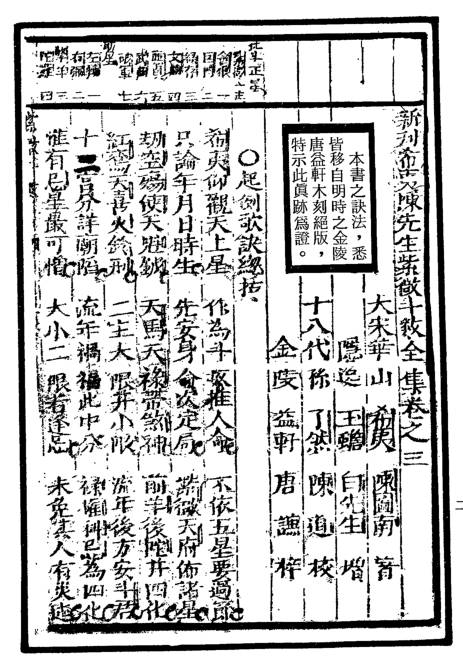 新刊希夷陳先生紫微斗数全集卷之三
大宋華山 希夷 陳圖南 著
隱逸 玉蟾 白先生 增
十八代孫 了然 陳道 校
金陵 益軒 唐謙 梓
本書之訣法，悉
皆移自明時之金陵
唐益軒木刻絕版，
特示此眞跡爲證。
○起例歌訣總括
希夷仰觀天上星 作為斗数推人命 不依五星要過節
只論年月日時生 先安身命次定局 紫微天府佈諸星
劫空傷使天魁鉞 天馬天祿帶煞神 前羊後陀并四化
紅鸞天喜火鈴刑 二主大限并小限 流年後方安斗君
十二宮分詳廟陷 流年禍福此中分 祿權科忌為四化
惟有忌星最可憎 大小二限若逢忌 未免其人有災迍
二